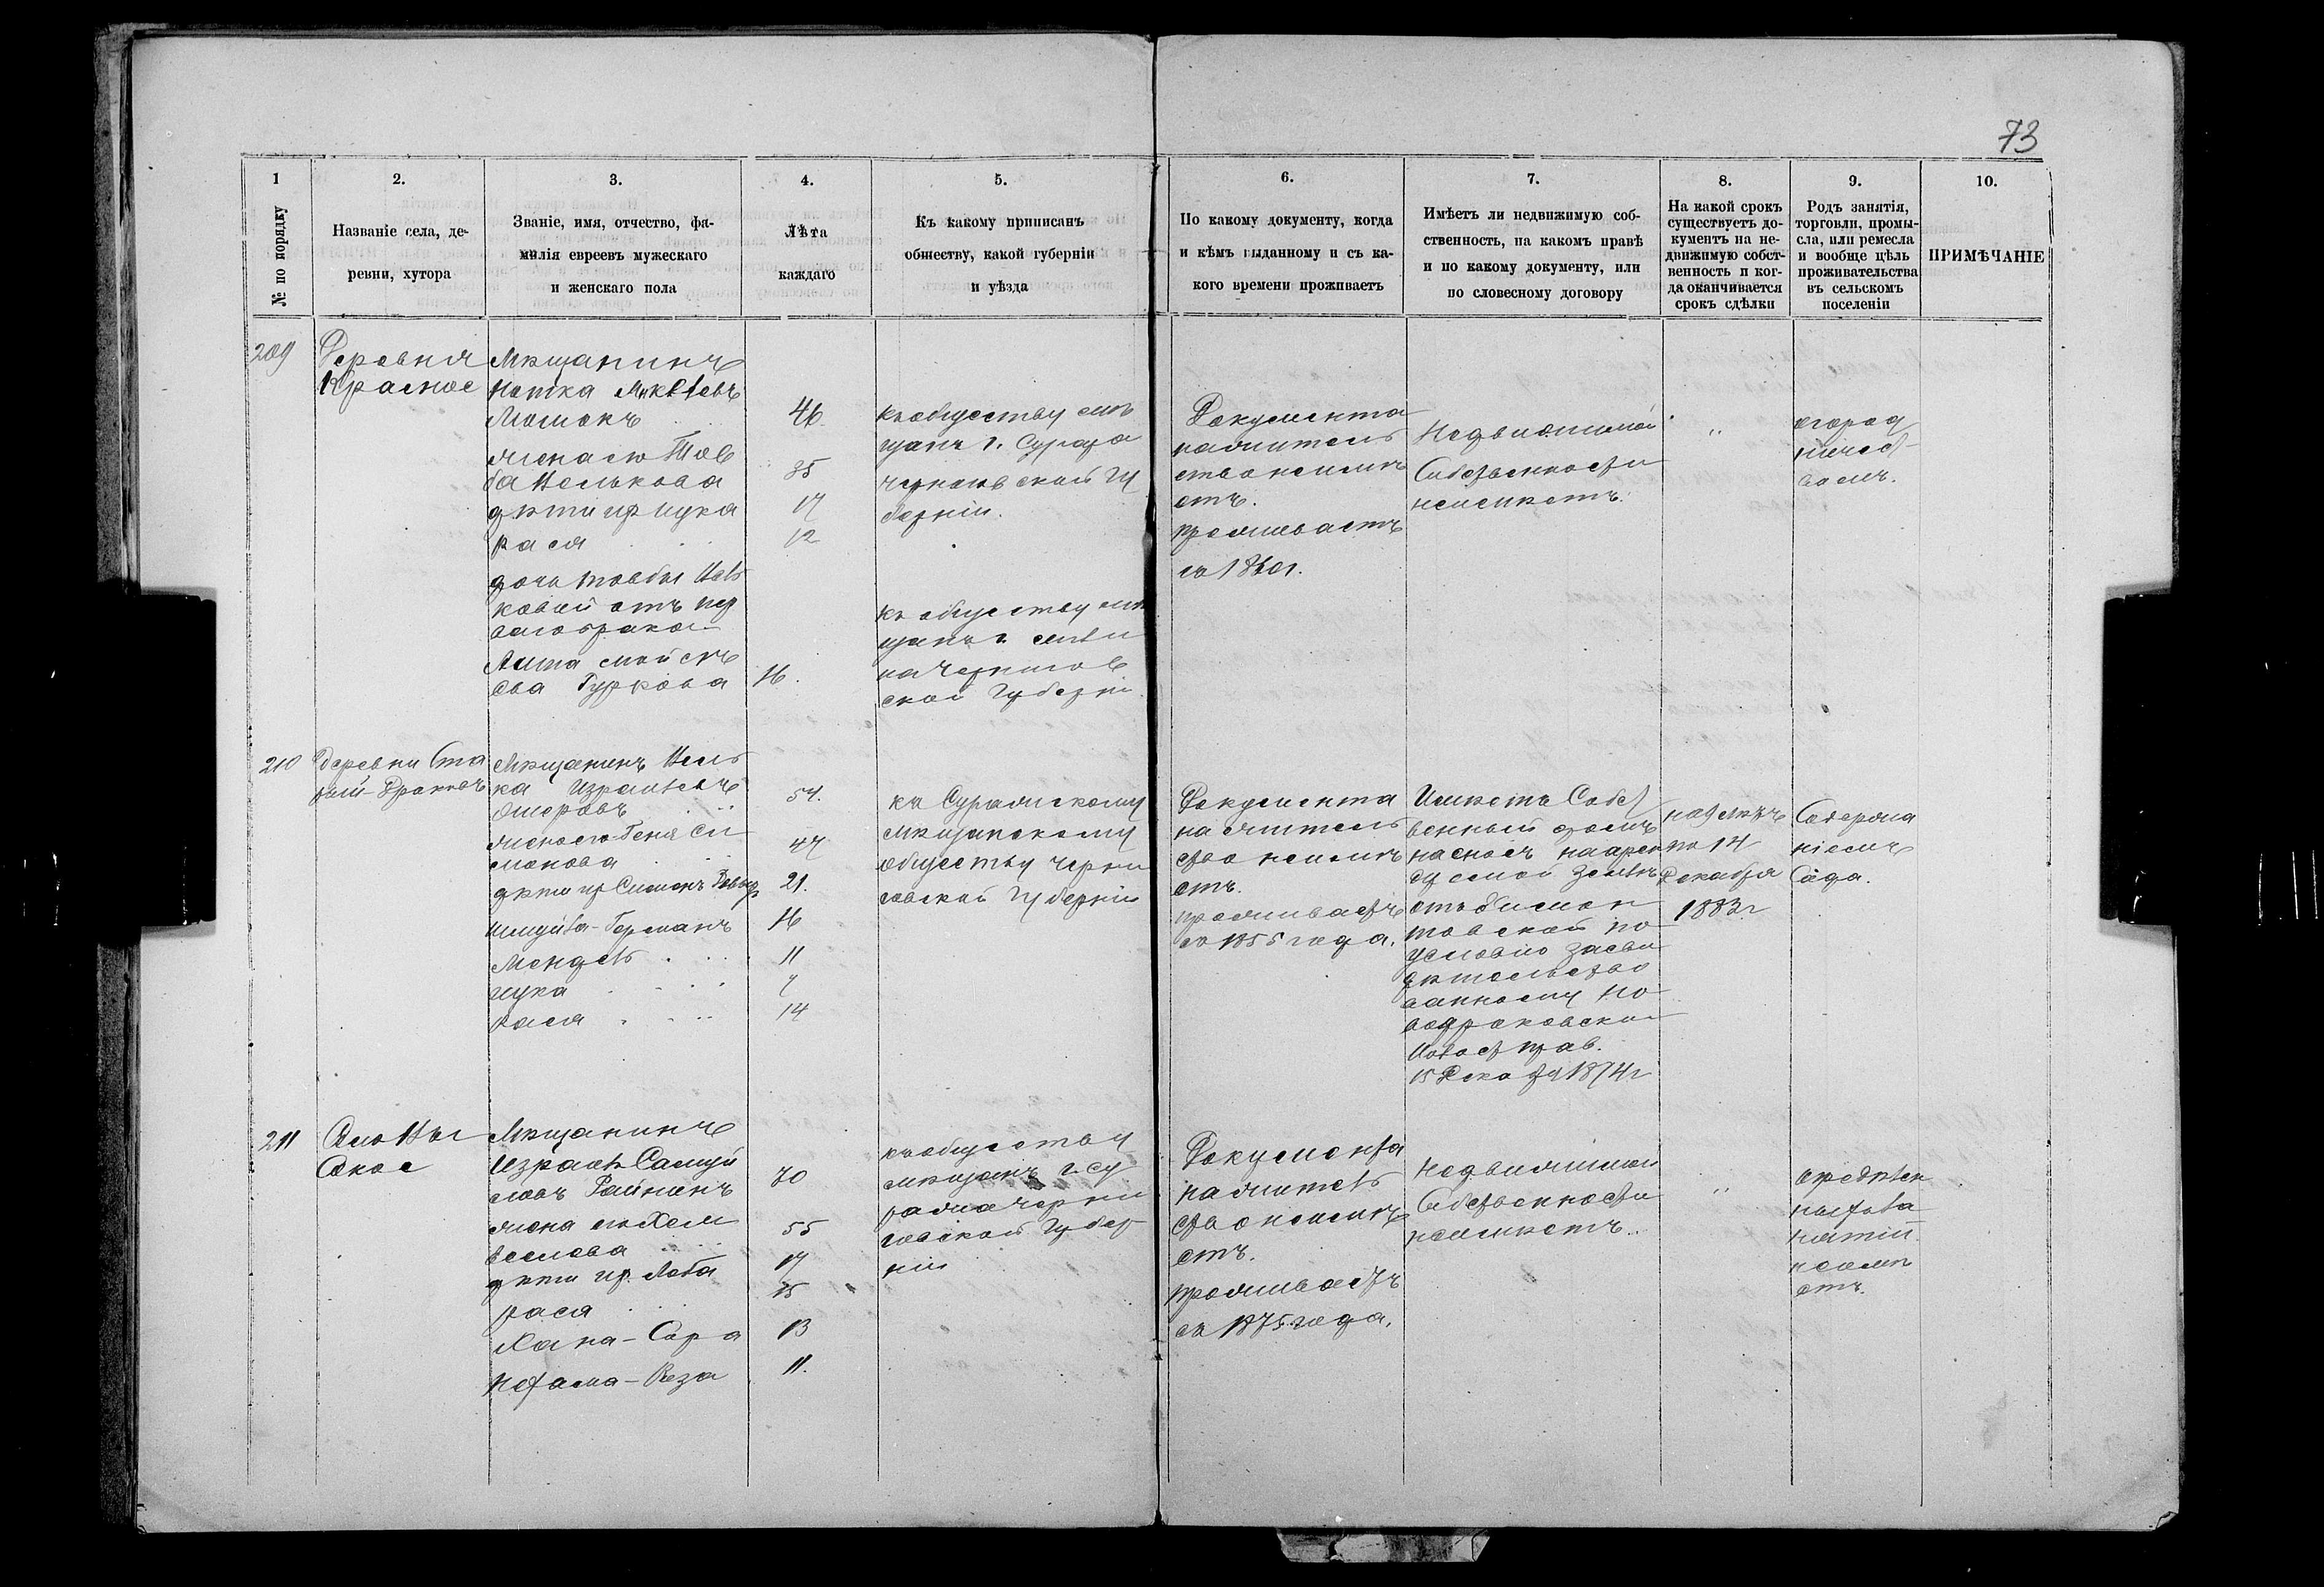 73
1
№ по порядку
2.
Названіе села, де-
ревни, хутора
3.
Званіе, имя, отчество, фа-
милія евреевъ мужескаго
и женскаго пола
4.
Лѣта
каждаго
5.
Къ какому приписанъ
обществу, какой губерніи
и уѣзда
6.
По какому документу, когда
и кѣмъ выданному и съ ка-
кого времени проживаетъ
7.
Имѣетъ ли недвижимую соб-
ственность, на какомъ правѣ
и по какому документу, или
по словесному договору
8.
На какой срокъ
существуетъ до-
кументъ на не-
движимую собст-
венность и ког-
да оканчивается
срокъ сдѣлки
9.
Родъ занятія,
торговли, промы-
сла, или ремесла
и вообще цѣль
проживательства
въ сельскомъ
поселеніи
10.
ПРИМѢЧАНІЕ
209
Деревня
Красное
Мѣщанинъ
Нотка
жена его Тов
ба
дѣти ихъ Цука
Рася
дочь Товбы
ковой отъ пер
ваго брака
сва Гуркова
46
35
17
12
16.
къ обществу мѣ
щанъ г. Суража
черниговской гу
берніи.
къ обществу мѣ
щанъ г.
на Чернигов
ской Губерніи
Документа
на жител
ство неимѣ
етъ.
проживаетъ
Недвижимой
Собственности
неимѣетъ.
"
огород
ничест
вомъ.
210
Деревни Ста
рый-
Мѣщанинъ
ка Израилевъ
жена его Геня Си
монова
дѣти ихъ Симонъ
Германъ
Мендель
Цука
Рася
54.
47
21.
16
11
7
14
къ Суражскому
мѣщанскому
обществу черни
говской Губерніи
Документа
на жител
ство неимѣ
етъ.
проживаетъ
съ 1855 года.
Имѣетъ Собст
венный домъ
на сносъ на арен
дуемой землѣ
отъ
товской по
условію засви
дѣтельство
ванному Но
водроковским
Волост прав.
15 Декабря 1874 г
на 9 лѣтъ
по 14
Декабря
1883 г
Содержа
ніемъ
Сада.
211
Мѣщанинъ
Израиль Самуй
ловъ
жена его
дѣти ихъ
Рася
Хана-Сора
70
55
17
15
13
11.
къ обществу
мѣщанъ г. Су
ража черни
говской Губер
ніи
Документа
на жител
ство неимѣ
етъ.
проживаетъ
съ 1875 года.
Недвижимой
Собственности
неимѣетъ.
"
опредѣлен
ныхъ за
нятій
неимѣ
етъ.